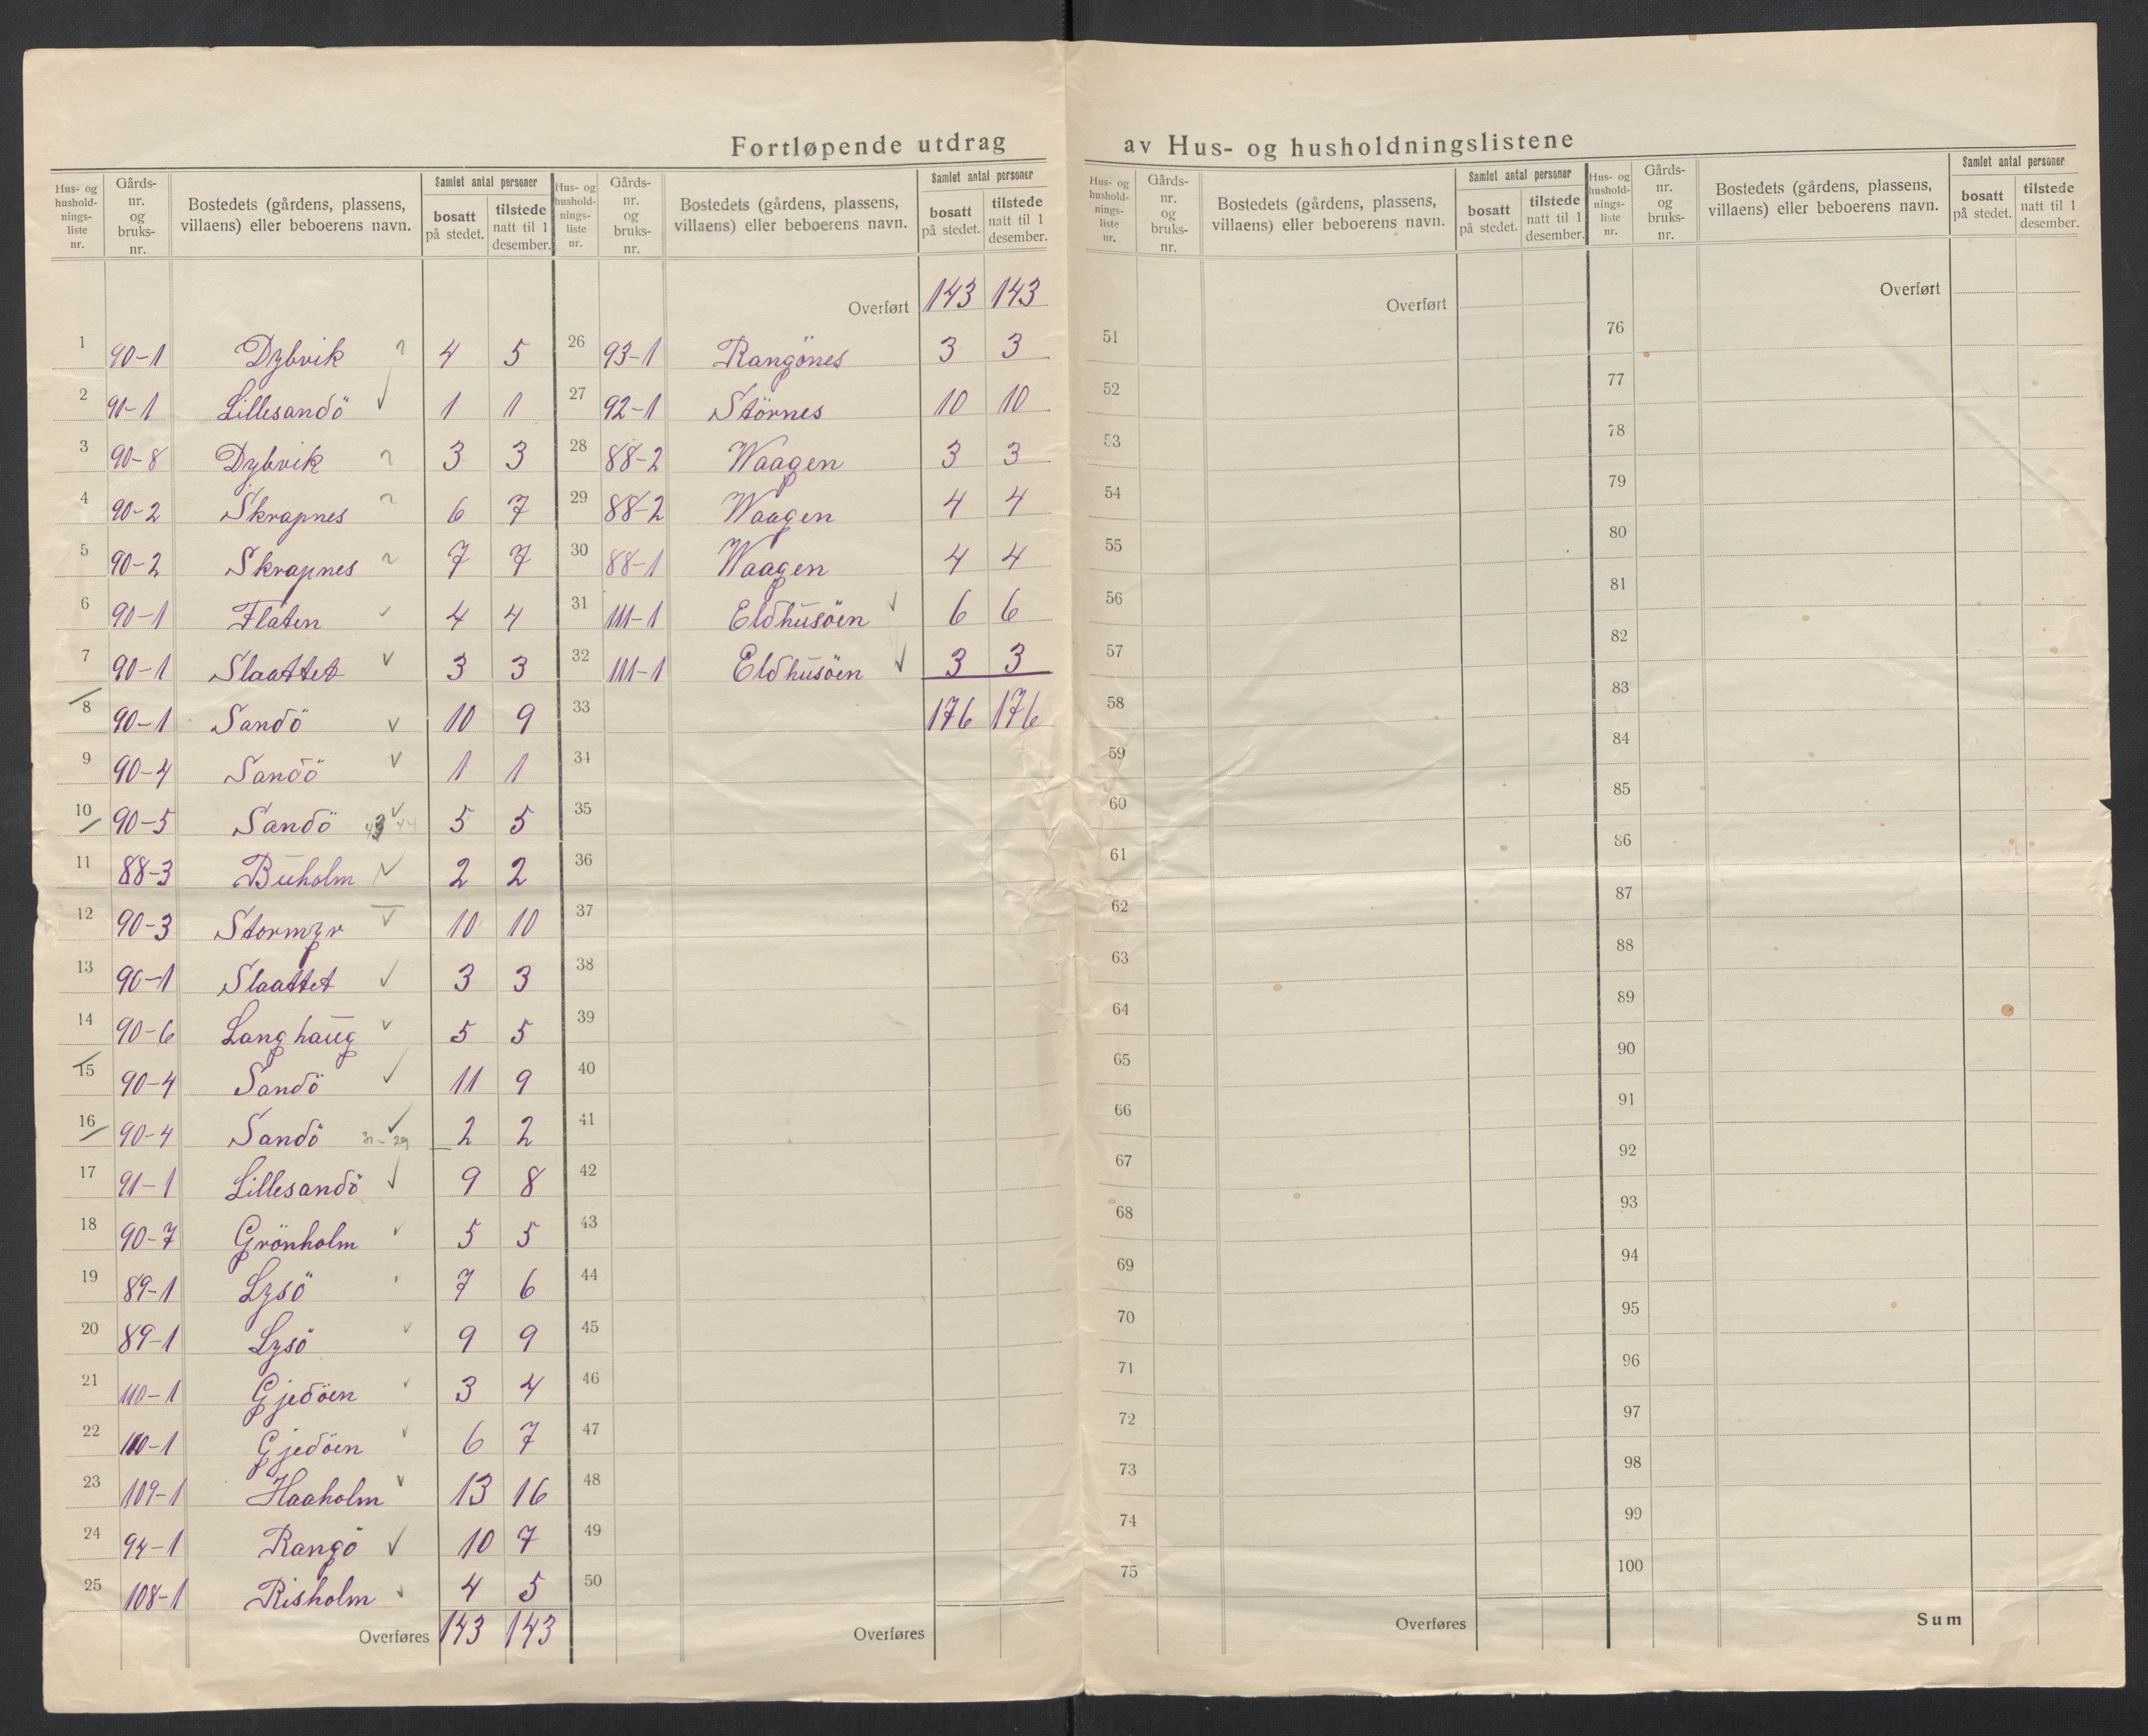 Fortløpende utdrag av Hus- og husholdningslistene
Hus- og husholdnings-liste nr. | Gårds-nr. og bruks-nr. | Bostedets (gårdens, plassens, villaens) eller beboerens navn. | Samlet antal personer | bosatt på stedet. | tilstede natt til 1 desember.
1 90-1 Dybvik ? 4 5
2 91-1 Lillesandö √ 1 1
3 90-8 Dybvik ? 3 3
4 90-2 Skrapnes ? 6 7
5 90-2 Skrapnes ? 7 7
6 90-1 Flaten √ 4 4
7 90-1 Slaattet √ 3 3
8 90-1 Sandö √ 10 9
9 90-4 Sandö √ 1 1
10 90-5 Sandö √ 5 5
11 88-3 Buholm √ 2 2
12 90-3 Stormyr √ 10 10
13 90-1 Slaattet √ 3 3
14 90-6 Langhaug √ 5 5
15 90-4 Sandö √ 11 9
16 90-4 Sandö 31-29 √ 2 2
17 91-1 Lillesandö √ 9 8
18 90-7 Grönholm √ 5 5
19 89-1 Lysö √ 7 6
20 89-1 Lysö √ 9 9
21 110-1 Gjedöen √ 3 4
22 110-1 Gjedöen √ 6 7
23 109-1 Haaholm √ 13 16
24 94-1 Rangö √ 10 7
25 108-1 Risholm √ 4 5
Overføres 143 143
Hus- og husholdnings-liste nr. | Gårds-nr. og bruks-nr. | Bostedets (gårdens, plassens, villaens) eller beboerens navn. | Samlet antal personer | bosatt på stedet. | tilstede natt til 1 desember.
Overført 143 143
26 93-1 Rangönes 3 3
27 92-1 Störnes 10 10
28 88-2 Waagen 3 3
29 88-2 Waagen 4 4
30 88-1 Waagen 4 4
31 111-1 Eldhusöen √ 6 6
32 111-1 Eldhusöen √ 3 3
33 176 176
34
35
36
37
38
39
40
41
42
43
44
45
46
47
48
49
50
Overføres
Hus- og hushold-nings-liste nr. | Gårds-nr. og bruks-nr. | Bostedets (gårdens, plassens, villaens) eller beboerens navn. | Samlet antal personer | bosatt på stedet. | tilstede natt til 1 desember.
Overført
51
52
53
54
55
56
57
58
59
60
61
62
63
64
65
66
67
68
69
70
71
72
73
74
75
Overføres
Hus- og hushold-nings-liste nr. | Gårds-nr. og bruks-nr. | Bostedets (gårdens, plassens, villaens) eller beboerens navn. | Samlet antal personer | bosatt på stedet. | tilstede natt til 1 desember.
Overført
76
77
78
79
80
81
82
83
84
85
86
87
88
89
90
91
92
93
94
95
96
97
98
99
100
Sum